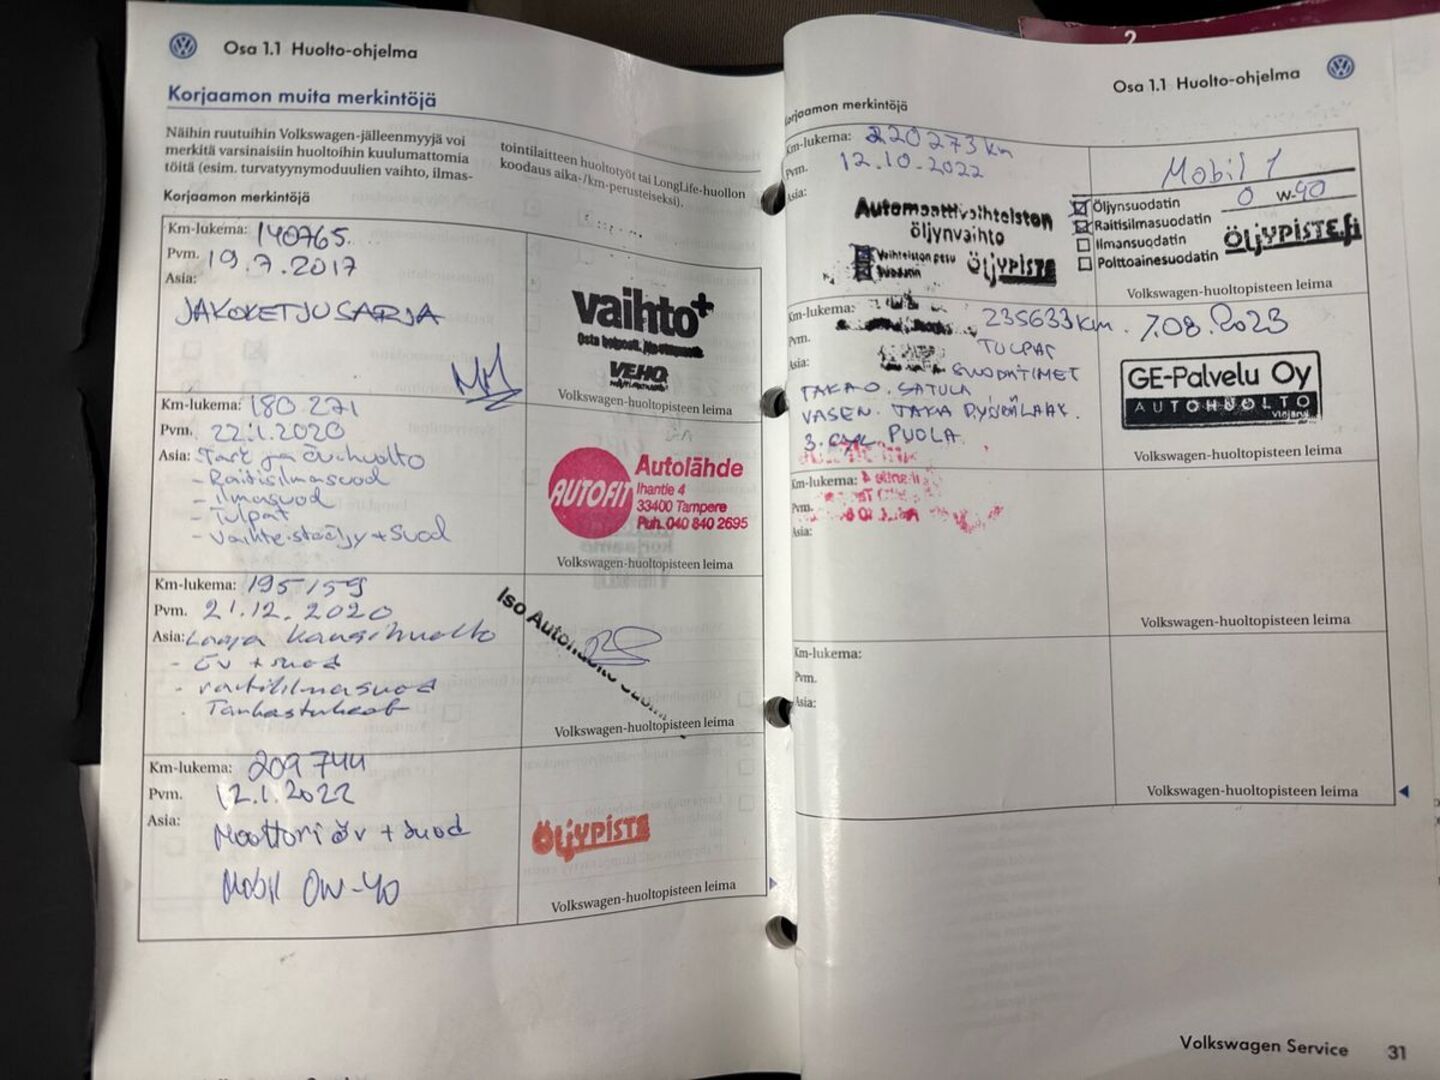 Osa 1.1 Huolto-ohjelma
Korjaamon muita merkintöjä
Näihin ruutuihin Volkswagen-jälleenmyyjä voi
merkitä varsinaisiin huoltoihin kuulumattomia
töitä (esim. turvatyynymoduulien vaihto, ilmas-
tointilaitteen huoltotyöt tai LongLife-huollon
koodaus aika-/km-perusteiseksi).
Korjaamon merkintöjä
Km-lukema: 140765
Pvm. 19.7.2017
Asia:
JAKOKETJUSARJA
vaihto+
VEHO
Volkswagen-huoltopisteen leima
Km-lukema: 180 271
Pvm. 22.1.2020
Asia: Tark ja öv-huolto
- Raitisilmasuod
- ilmasuod
- Tulpat
- vaihteistoöljy + suod
AUTOFIT
Autolähde
Ihantie 4
33400 Tampere
Puh. 040 840 2695
Volkswagen-huoltopisteen leima
Km-lukema: 195159
Pvm. 21.12.2020
Asia: Laaja kausihuolto
- öv + suod
- raitisilmasuod
- Tankastukset
Iso Autohuolto
Volkswagen-huoltopisteen leima
Km-lukema: 209 744
Pvm. 12.1.2022
Asia:
Moottori öv + suod
Mobil 0W-40
ÖLJYPISTE
Volkswagen-huoltopisteen leima
Osa 1.1 Huolto-ohjelma
Korjaamon merkintöjä
Km-lukema: 220 273 km
Pvm. 12.10.2022
Asia:
Automaattivaihteiston
öljynvaihto
Vaihteiston pesu
Suodatin
ÖLJYPISTE
Mobil 1
0 W-40
Öljynsuodatin
Raitisilmasuodatin
Ilmansuodatin
Polttoainesuodatin
ÖLJYPISTE.fi
Volkswagen-huoltopisteen leima
Km-lukema: 235633 km. 7.08.2023
Pvm. TULPAT
Asia: SUODATIMET
TAKA O. SATULA
VASEN. TAKA PYÖRÄLAAK.
3. CYL PUOLA
GE-Palvelu Oy
AUTOHUOLTO
Volkswagen-huoltopisteen leima
Km-lukema:
Pvm.
Asia:
Volkswagen-huoltopisteen leima
Km-lukema:
Pvm.
Asia:
Volkswagen-huoltopisteen leima
Volkswagen Service 31
2